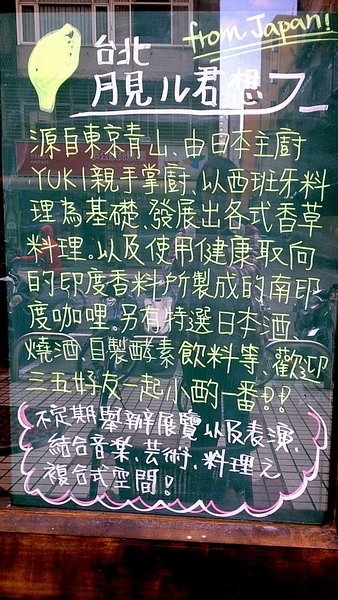 from Japan!
台北
月見ル君想フ
源自東京青山、由日本主廚
YUKI親手掌廚、以西班牙料
理為基礎、發展出各式香草
料理。以及使用健康取向
的印度香料所製成的南印
度咖哩。另有特選日本酒、
燒酒、自製酵素飲料等、歡迎
三五好友一起小酌一番!!
不定期舉辦展覽以及表演、
結合音楽、芸術、料理之
複合式空間!